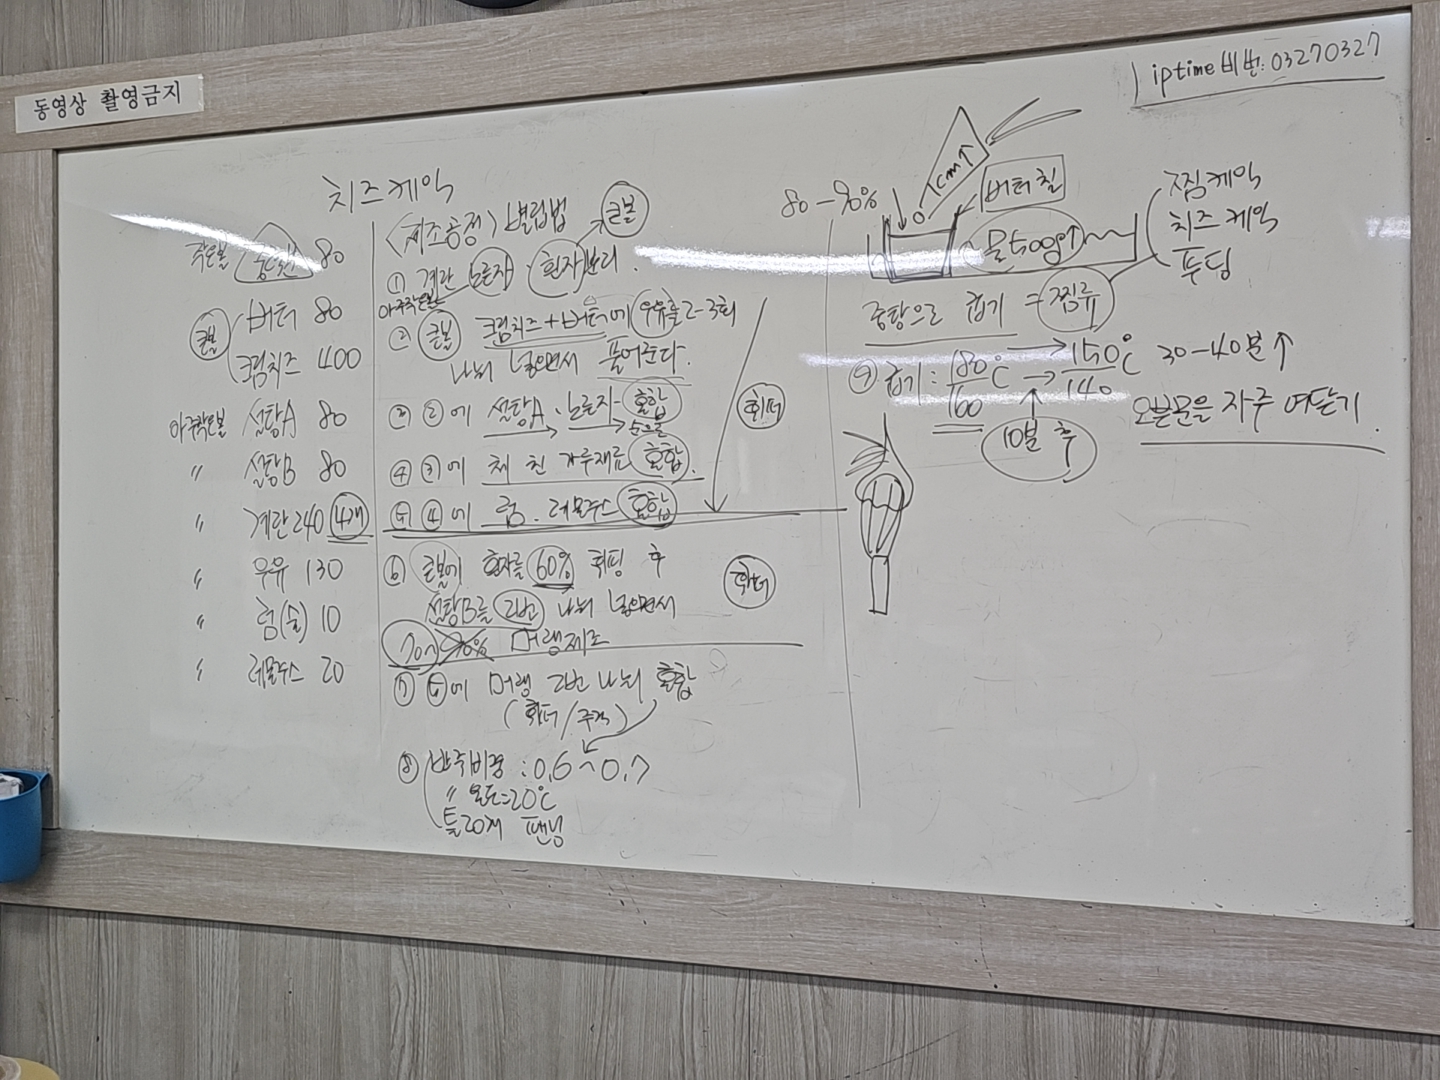 동영상 촬영금지
iptime 비번: 03270327
치즈케익
작은볼 중력분 80
큰볼 버터 80
크림치즈 400
아주작은볼 설탕A 80
〃 설탕B 80
〃 계란 240 4개
〃 우유 130
〃 럼(술) 10
〃 레몬쥬스 20
<제조공정> 별립법 큰볼
① 계란 노른자·흰자 분리.
아주작은볼
② 큰볼 크림치즈+버터에 우유를 2-3회
나눠 넣으면서 풀어준다.
③ ②에 설탕A·노른자 혼합
④ ③에 체 친 가루재료 혼합.
⑤ ④에 럼·레몬쥬스 혼합
휘퍼
⑥ 큰볼에 흰자를 60% 휘핑 후
설탕B를 2번 나눠 넣으면서
70~ 머랭제조
휘퍼
⑦ ⑤에 머랭 2번 나눠 혼합
(휘퍼/주걱)
⑧ 반죽비중 : 0.6~0.7
〃 온도=20℃
틀20개 팬닝
80-90%
1cm↑
버터칠
물500g↑
찜케익
치즈케익
푸딩
중탕으로 굽기 = 찜류
⑨ 굽기 : 180/160℃ → 150/140℃ 30-40분↑
10분 후
오븐문을 자주 여닫기.